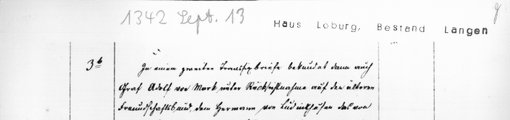 1342 Sept. 13
Haus Loburg, Bestand Langen
3b
In einem zweiten Transfixbriefe bekundet dann auch
Graf Adolf von Mark unter Rücksichtnahme auf den älteren
Freundschaftsbund dem Hermann von Lüdinghausen das von